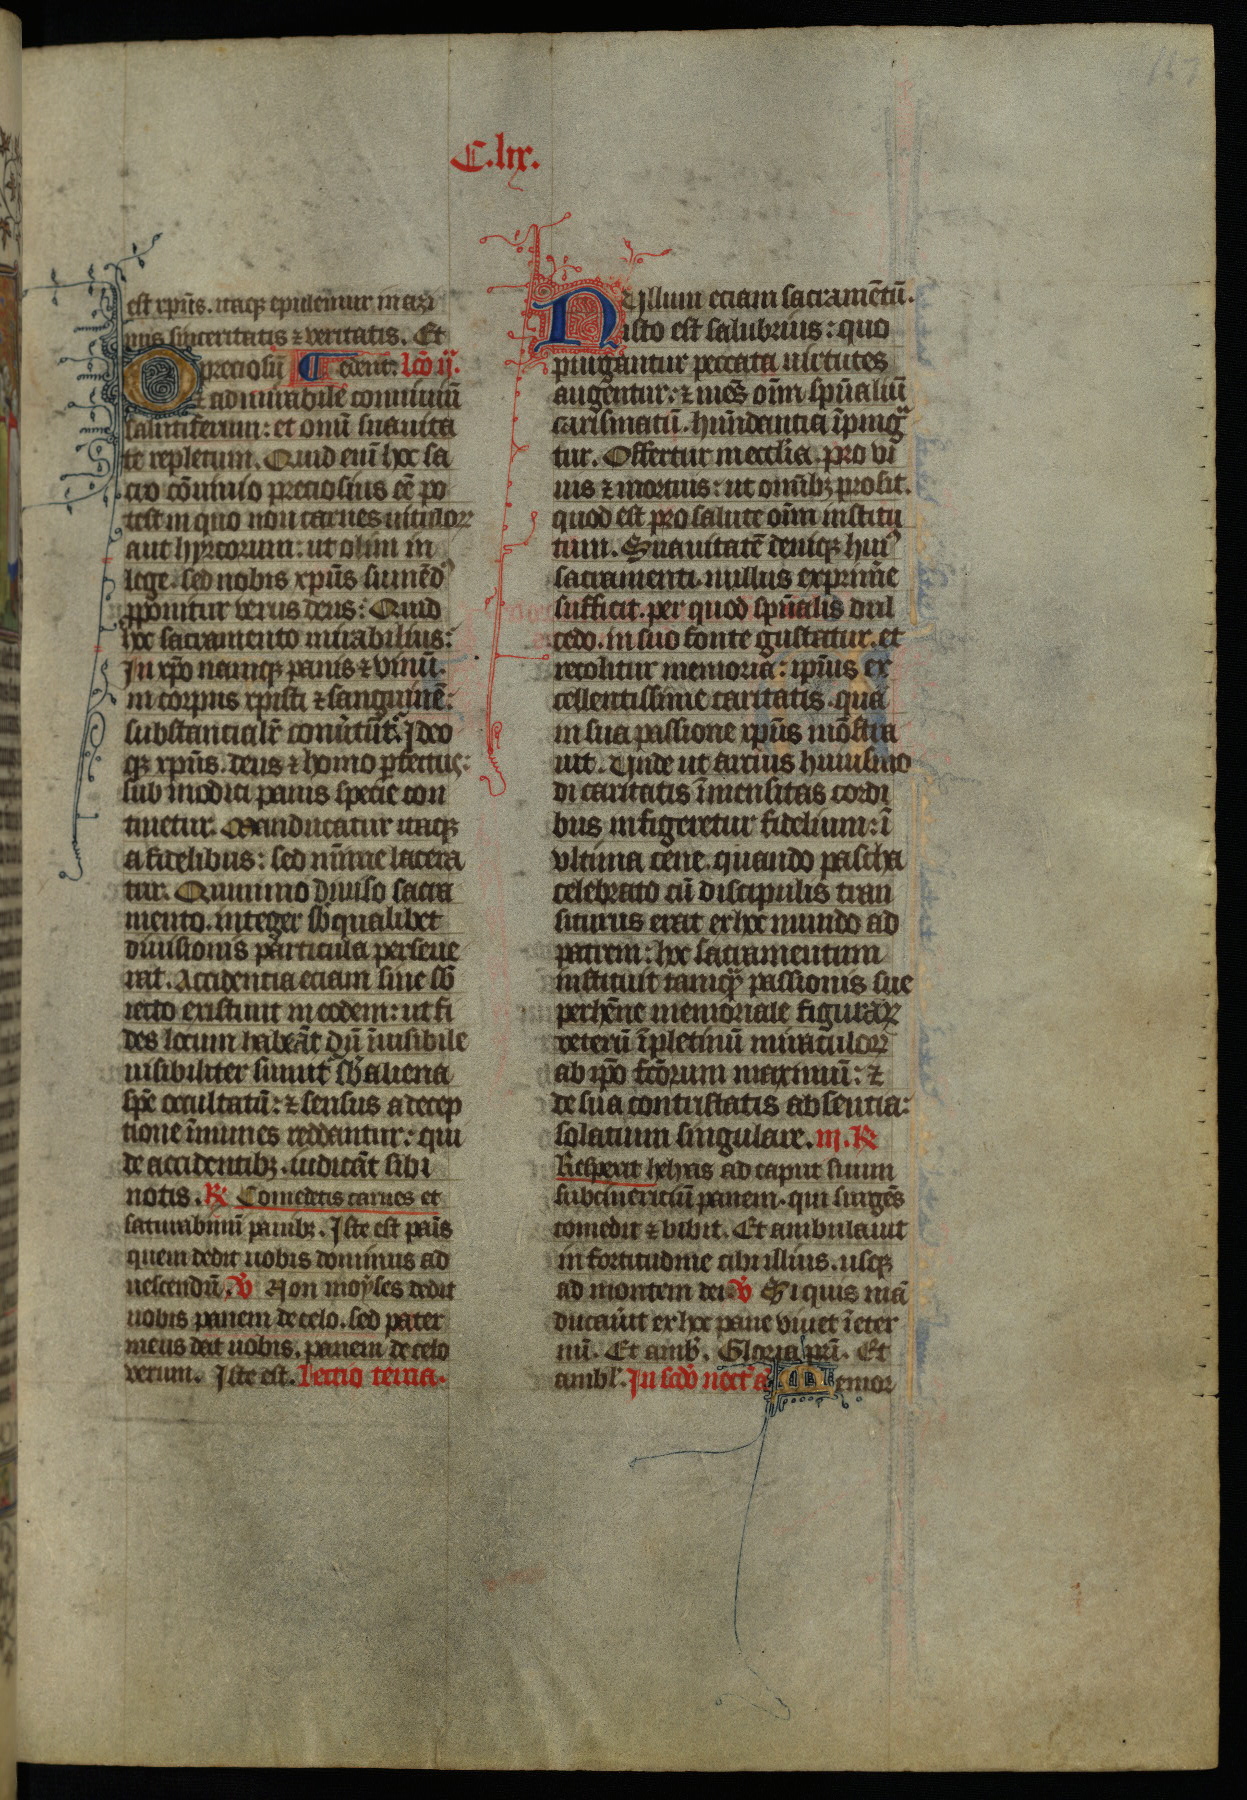 C.lix.
est xp̄us. itaq; epulemur in azi
mis sinceritatis ⁊ veritatis. Et
ederūt. lcō ij.
O preciosū
⁊ admirabile conuiuiū
salutiferum: et omī suauita
te repletum. Quid enī hoc sa
cro cōuiuio preciosius eē po
test in quo non carnes uitulor̄
aut hyrcorum: ut olim in
lege. sed nobis xp̄us sumēdꝰ
pponitur verus deus: Quid
hoc sacramento mirabilius:
In xp̄o namq; panis ⁊ vinū.
in corpus xpisti ⁊ sanguinē:
substancialr̄ conūtūt᷒. Ideo
q; xp̄us. deus ⁊ homo pfectus:
sub modici panis specie con
tinetur. Manducatur itaq;
a fidelibus: sed mīme lacera
tur. Quinimo diuiso sacra
mento. integer sb̄ qualibet
diuisionis particula perseue
rat. Accidentia eciam sine sb̄
iecto existunt in eodem: ut fi
des locum habeāt dū īuisibile
uisibiliter sumit᷒ sb̄ aliena
spē occultatū: ⁊ sensus a decep
tione īmunes reddantur: qui
de accidentib; iudicāt sibi
notis. ℟ Comedetis carnes et
saturabimī panib;. Iste est panis
quem dedit uobis dominus ad
uescendū. ℣ Non moyses dedit
uobis panem de celo. sed pater
meus dat uobis. panem de celo
verum. Iste est. Lectio tertia.
Nullum eciam sacramētū.
isto est salubrius: quo
purgantur peccata uirtutes
augentur: ⁊ mēs oīm spūaliū
carismatū. habūdantia īping᷒
tur. Offertur in ecclīa. pro vi
uis ⁊ mortuis: ut omīb; prosit.
quod est pro salute oīm institu
tum. Suauitatē deniq; huiꝰ
sacramenti. nullus exprime
sufficit. per quod spūalis dul
cedo. in suo fonte gustatur. et
recolitur memoria: ip̄ius ex
cellentissime caritatis. qua
in sua passione xp̄us mōstra
uit. Unde ut arcius huiusmo
di caritatis īmensitas cordi
bus infigeretur fidelium: ī
vltima cene. quando pascha
celebrato cū discipulis tran
siturus erat ex hoc mundo ad
patrem: hoc sacramentum
instituit tamq̄ passionis sue
perhēne memoriale figurar̄
veterū īpletiuū miraculor̄
ab ip̄o fcōrum maximū: ⁊
de sua contristatis absentia:
solatium singulare. iij. ℟
Respexit helyas ad caput suum
subcinericiū panem. qui surgēs
comedit ⁊ bibit. Et ambulauit
in fortitudine cibi illius. usq;
ad montem dei. ℣ Si quis mā
ducaūit ex hoc pane viuet ī eter
nū. Et amb̄. Gloria pr̄i. Et
ambl᷒. In scdō noct᷒ a᷒ Memor